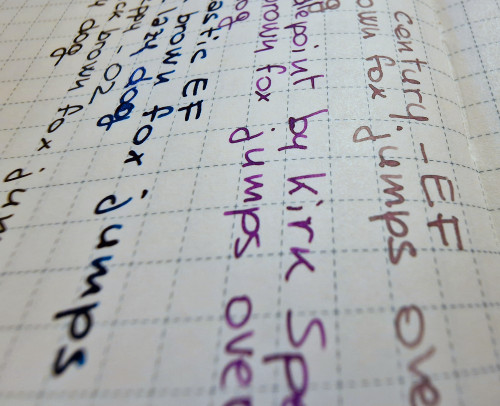 century - EF
own fox jumps ove
g
depoint by Kirk Sp
rown fox jumps over
og
astic EF
brown fox jumps
lazy dog
ppy - 02
ck brown fox jum
y dog